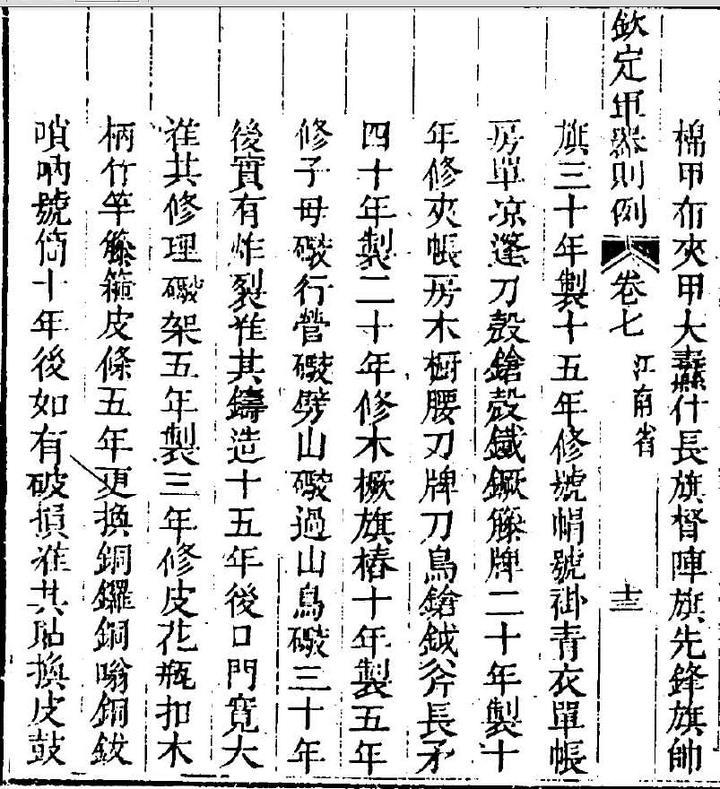 棉甲布夾甲大纛什長旗督陣旗先鋒旗帥
欽定軍器則例 卷七 江南省 十三
旗三十年製十五年修號帽號褂青衣單帳
房單凉篷刀殼鎗殼鐵鐝籐牌二十年製十
年修夾帳房木橱腰刀牌刀鳥鎗鉞斧長矛
四十年製二十年修木橛旗樁十年製五年
修子母礮行營礮劈山礮過山鳥礮三十年
後實有炸裂准其鑄造十五年後口門寬大
准其修理礮架五年製三年修皮花瓶扣木
柄竹竿籐箍皮條五年更換銅鑼銅嗡銅鈸
嗩吶號筒十年後如有破損准其貼換皮鼓